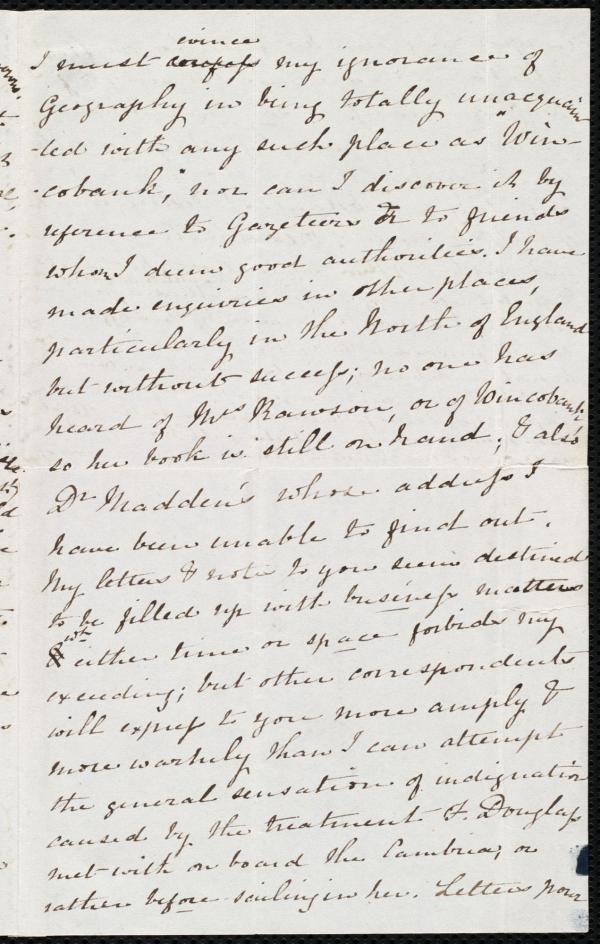 evince
I must confess my ignorance of
Geography in being totally unacquain
-ted with any such place as "Win-
-cobank," nor can I discover it by
reference to Gazetiers or to friends
whom I deem good authorities. I have
made enquiries in other places,
particularly in the North of England
but without success; no one has
heard of Mrs Rawson, or of Wincobank,
so her book is still on hand; & also
Dr Madden's whose address I
have been unable to find out.
My letters & notes to you seem destined
to be filled up with business matters
wh
& either time or space forbids my
exceeding; but other correspondents
will express to you more amply &
more warmly than I can attempt
the general sensation of indignation
caused by the treatment F. Douglass
met with on board the Cambria, or
rather before sailing in her. Letters pour